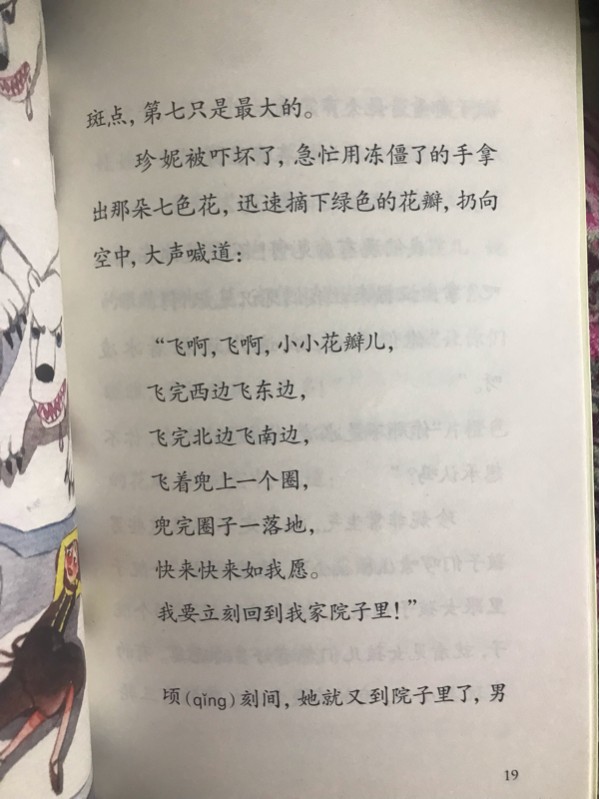 斑点，第七只是最大的。
珍妮被吓坏了，急忙用冻僵了的手拿
出那朵七色花，迅速摘下绿色的花瓣，扔向
空中，大声喊道：
“飞啊，飞啊，小小花瓣儿，
飞完西边飞东边，
飞完北边飞南边，
飞着兜上一个圈，
兜完圈子一落地，
快来快来如我愿。
我要立刻回到我家院子里！”
顷(qǐng)刻间，她就又到院子里了，男
19